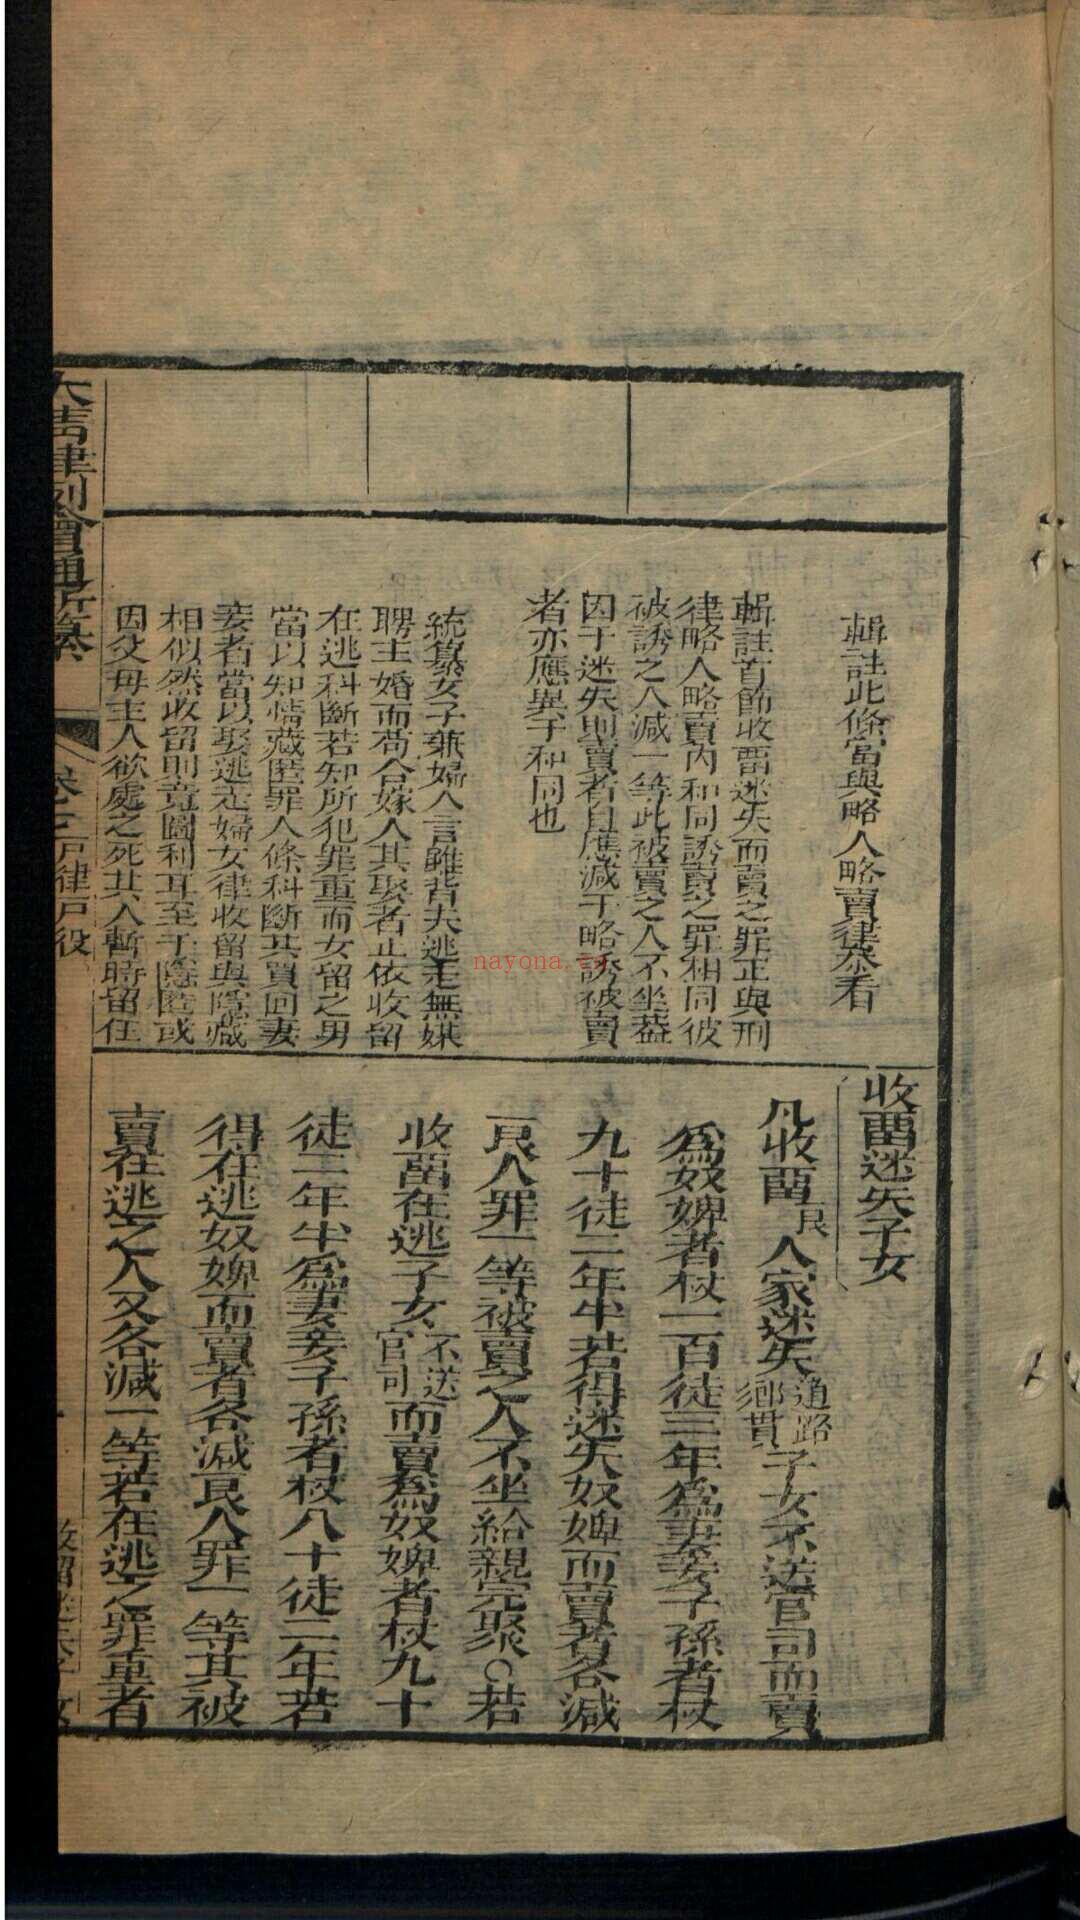 輯註此條當與略人略賣律叅看
輯註首節收畱迷失而賣之罪正與刑
律略人略賣內和同誘賣之罪相同彼
被誘之人減一等此被賣之人不坐葢
因于迷失則賣者且應減于略誘被賣
者亦應異于和同也
統纂女子兼婦人言雖背夫逃走無媒
聘主婚而苟合嫁人其娶者止依收留
在逃科斷若知所犯罪重而女留之男
當以知情藏匿罪人條科斷其買回妻
妾者當以娶逃走婦女律收留與隱藏
相似然收留則竟圖利耳至于隱匿或
因父母主人欲處之死其人暫時留住
收畱迷失子女
凡收畱良人家迷失道路鄉貫子女不送官司而賣
爲奴婢者杖一百徒三年爲妻妾子孫者杖
九十徒二年半若得迷失奴婢而賣者各減
良人罪一等被賣之人不坐給親完聚○若
收畱在逃子女不送官司而賣爲奴婢者杖九十
徒二年半爲妻妾子孫者杖八十徒二年若
得在逃奴婢而賣者各減良人罪一等其被
賣在逃之人又各減一等若在逃之罪重者
大淸律例會通新纂
卷之 戶律戶役
收留迷失子女
nayona.cn